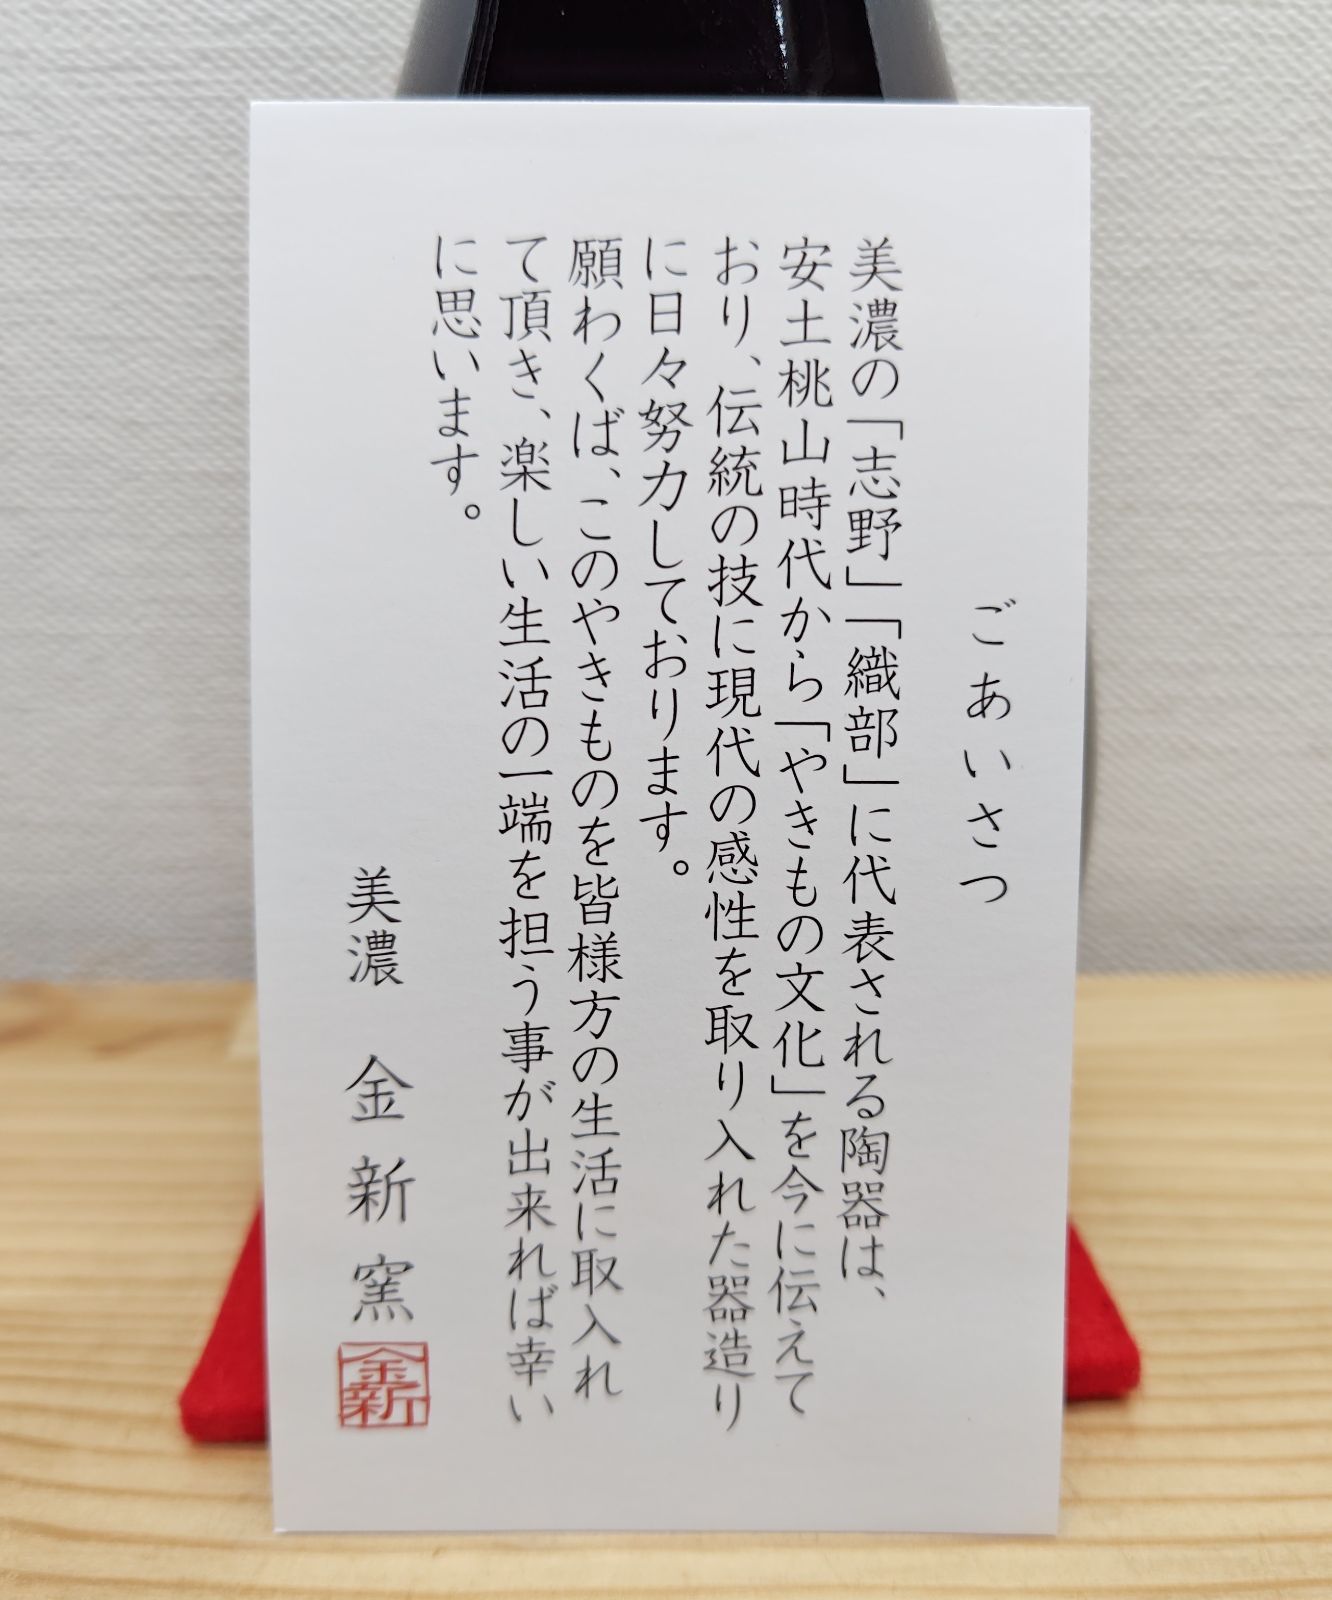 ごあいさつ
美濃の「志野」「織部」に代表される陶器は、
安土桃山時代から「やきもの文化」を今に伝えて
おり、伝統の技に現代の感性を取り入れた器造り
に日々努力しております。
願わくば、このやきものを皆様方の生活に取入れ
て頂き、楽しい生活の一端を担う事が出来れば幸い
に思います。
美濃 金新窯
金新